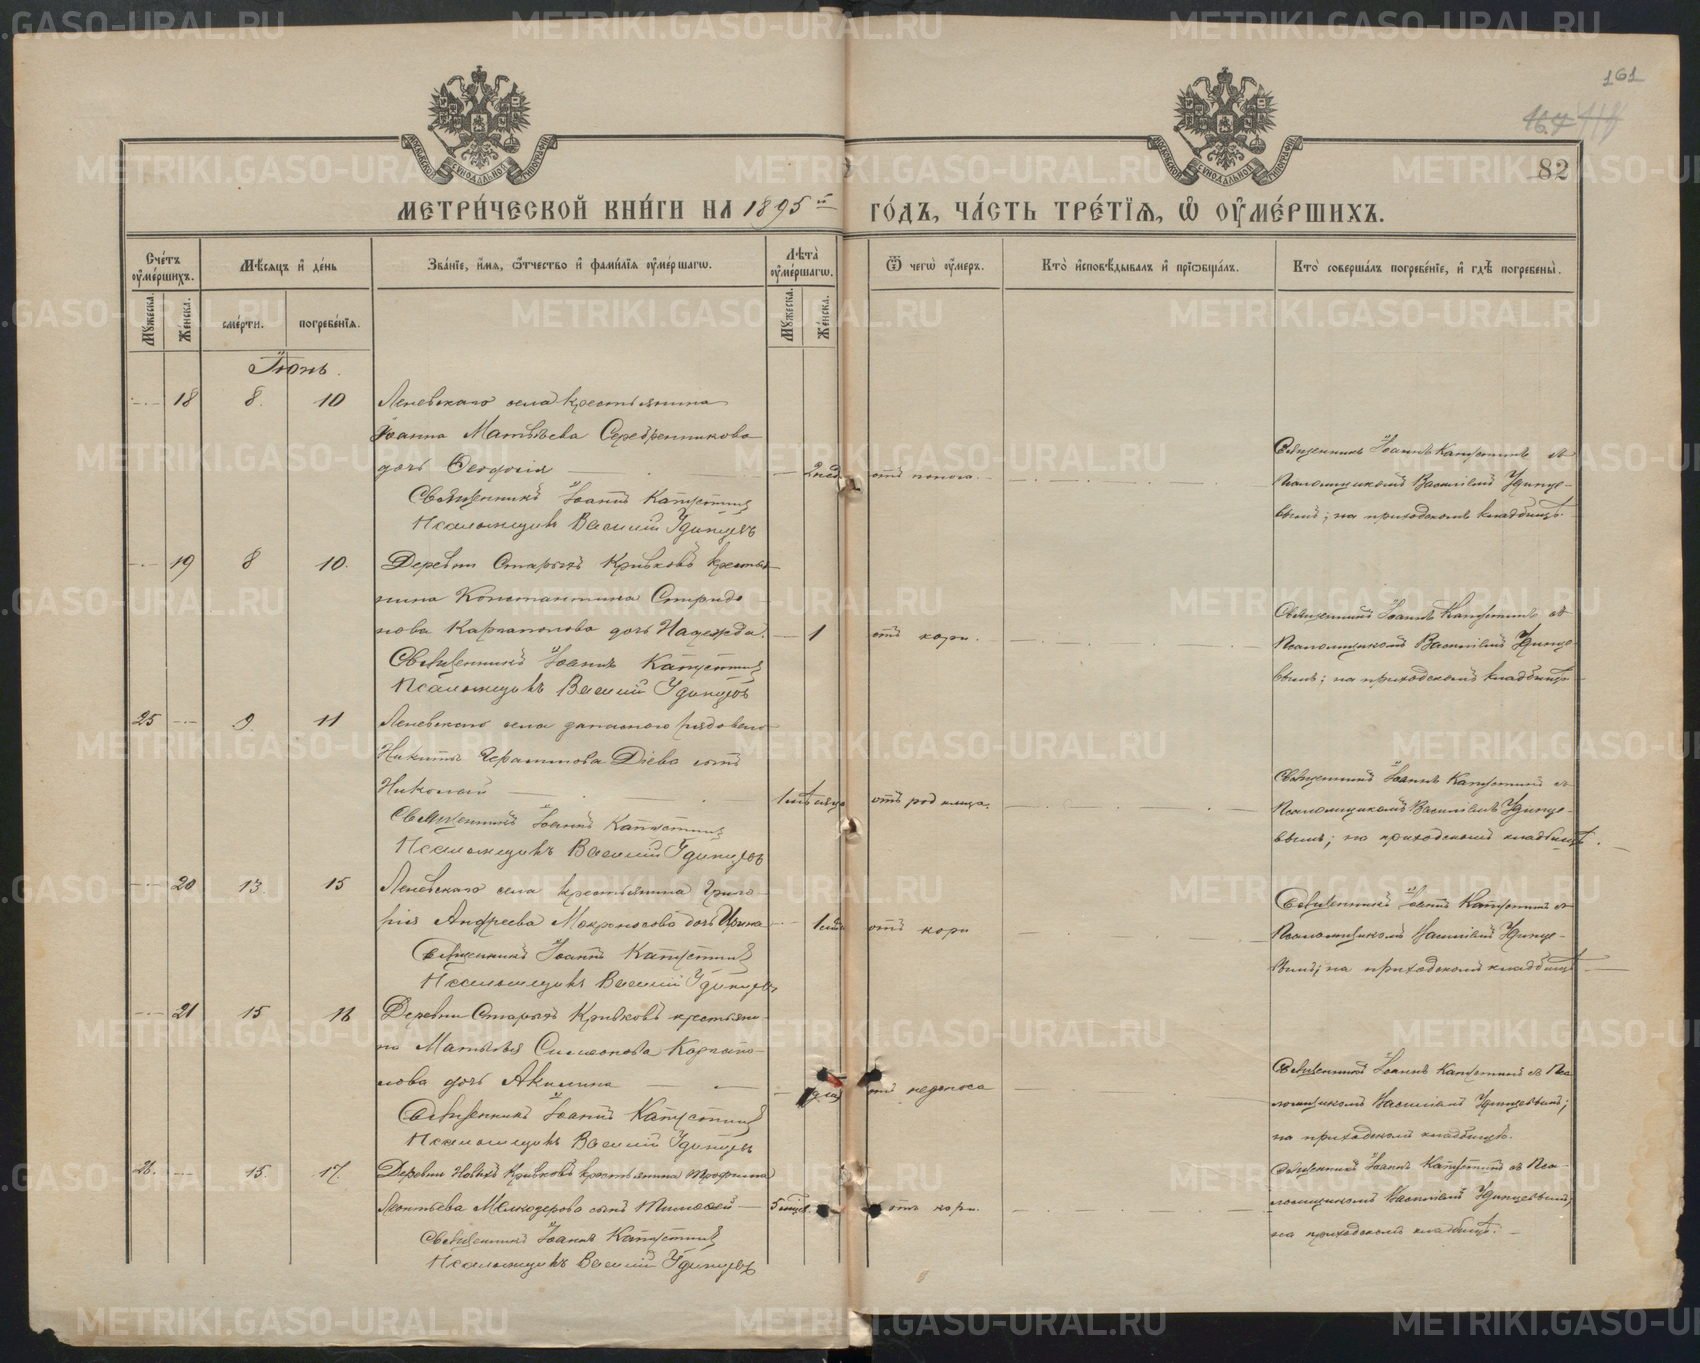 161
82
МЕТРИ́ЧЕСКОЙ КНИ́ГИ НА 1895й ГО́ДЪ, ЧА́СТЬ ТРЕ́ТЇѦ, Ѽ ОУ҆МЕ́РШИХЪ.
Сче́тъ оу҆ме́ршихъ.
Мѣ́сѧцъ и҆ де́нь
Зва́нїе, и҆́мѧ, ѻ҆́тчество и҆ фами́лїѧ оу҆ме́ршагѡ.
Лѣ́та оу҆ме́ршагѡ.
Ѿ чегѡ̀ оу҆́меръ.
Кто̀ и҆сповѣ́дывалъ и҆ прїѡбща́лъ.
Кто̀ соверша́лъ погребе́нїе, и҆ гдѣ̀ погребены̀.
Мꙋ́жеска.
Же́нска.
сме́рти.
погребе́нїѧ.
Мꙋ́жеска.
Же́нска.
Іюнь.
18 8. 10 Леневскаго села крестьянина
Іоанна Матвѣева Серебренникова
дочь Ѳеодосія 2 нед.
Священникъ Іоаннъ Капустинъ
Псаломщикъ Василій Удинцевъ
Священникъ Іоаннъ Капустинъ съ
Псаломщикомъ Василіемъ Удинце-
вымъ; на приходскомъ кладбищѣ.
19 8 10. Деревни Старыхъ Кривковъ крестья-
нина Константина Спиридо
нова Карпаполова дочь Надежда. 1 отъ кори.
Священникъ Іоаннъ Капустинъ
Псаломщикъ Василій Удинцевъ
Священникъ Іоаннъ Капустинъ съ
Псаломщикомъ Василіемъ Удинце-
вымъ; на приходскомъ кладбищѣ
25 9. 11 Леневскаго села запаснаго рядоваго
Никиты Діева сынъ
Николай 1 мѣсяца отъ родимца.
Священникъ Іоаннъ Капустинъ
Псаломщикъ Василій Удинцевъ
Священникъ Іоаннъ Капустинъ съ
Псаломщикомъ Василіемъ Удинце-
вымъ; на приходскомъ кладбищѣ.
20 13. 15 Леневскаго села крестьянина Григо-
рія Андреева Мокроносова дочь 1 отъ кори
Священникъ Іоаннъ Капустинъ
Псаломщикъ Василій Удинцевъ
Священникъ Іоаннъ Капустинъ съ
Псаломщикомъ Василіемъ Удинце-
вымъ; на приходскомъ кладбищѣ
21 15 16 Деревни Старыхъ Кривковъ крестьяни-
на Матвѣя Симеонова Карпапо-
лова дочь Акилина отъ недоноса
Священникъ Іоаннъ Капустинъ
Псаломщикъ Василій Удинцевъ
Священникъ Іоаннъ Капустинъ съ Пса
ломщикомъ Василіемъ Удинцевымъ;
на приходскомъ кладбищѣ.
26. 15. 17. Деревни Новыхъ Кривковъ крестьянина Трофима
Леонтьева Мелкозерова сынъ Тимофей 5 отъ кори.
Священникъ Іоаннъ Капустинъ
Псаломщикъ Василій Удинцевъ
Священникъ Іоаннъ Капустинъ съ Пса-
ломщикомъ Василіемъ Удинцевымъ;
на приходскомъ кладбищѣ.
METRIKI.GASO-URAL.RU